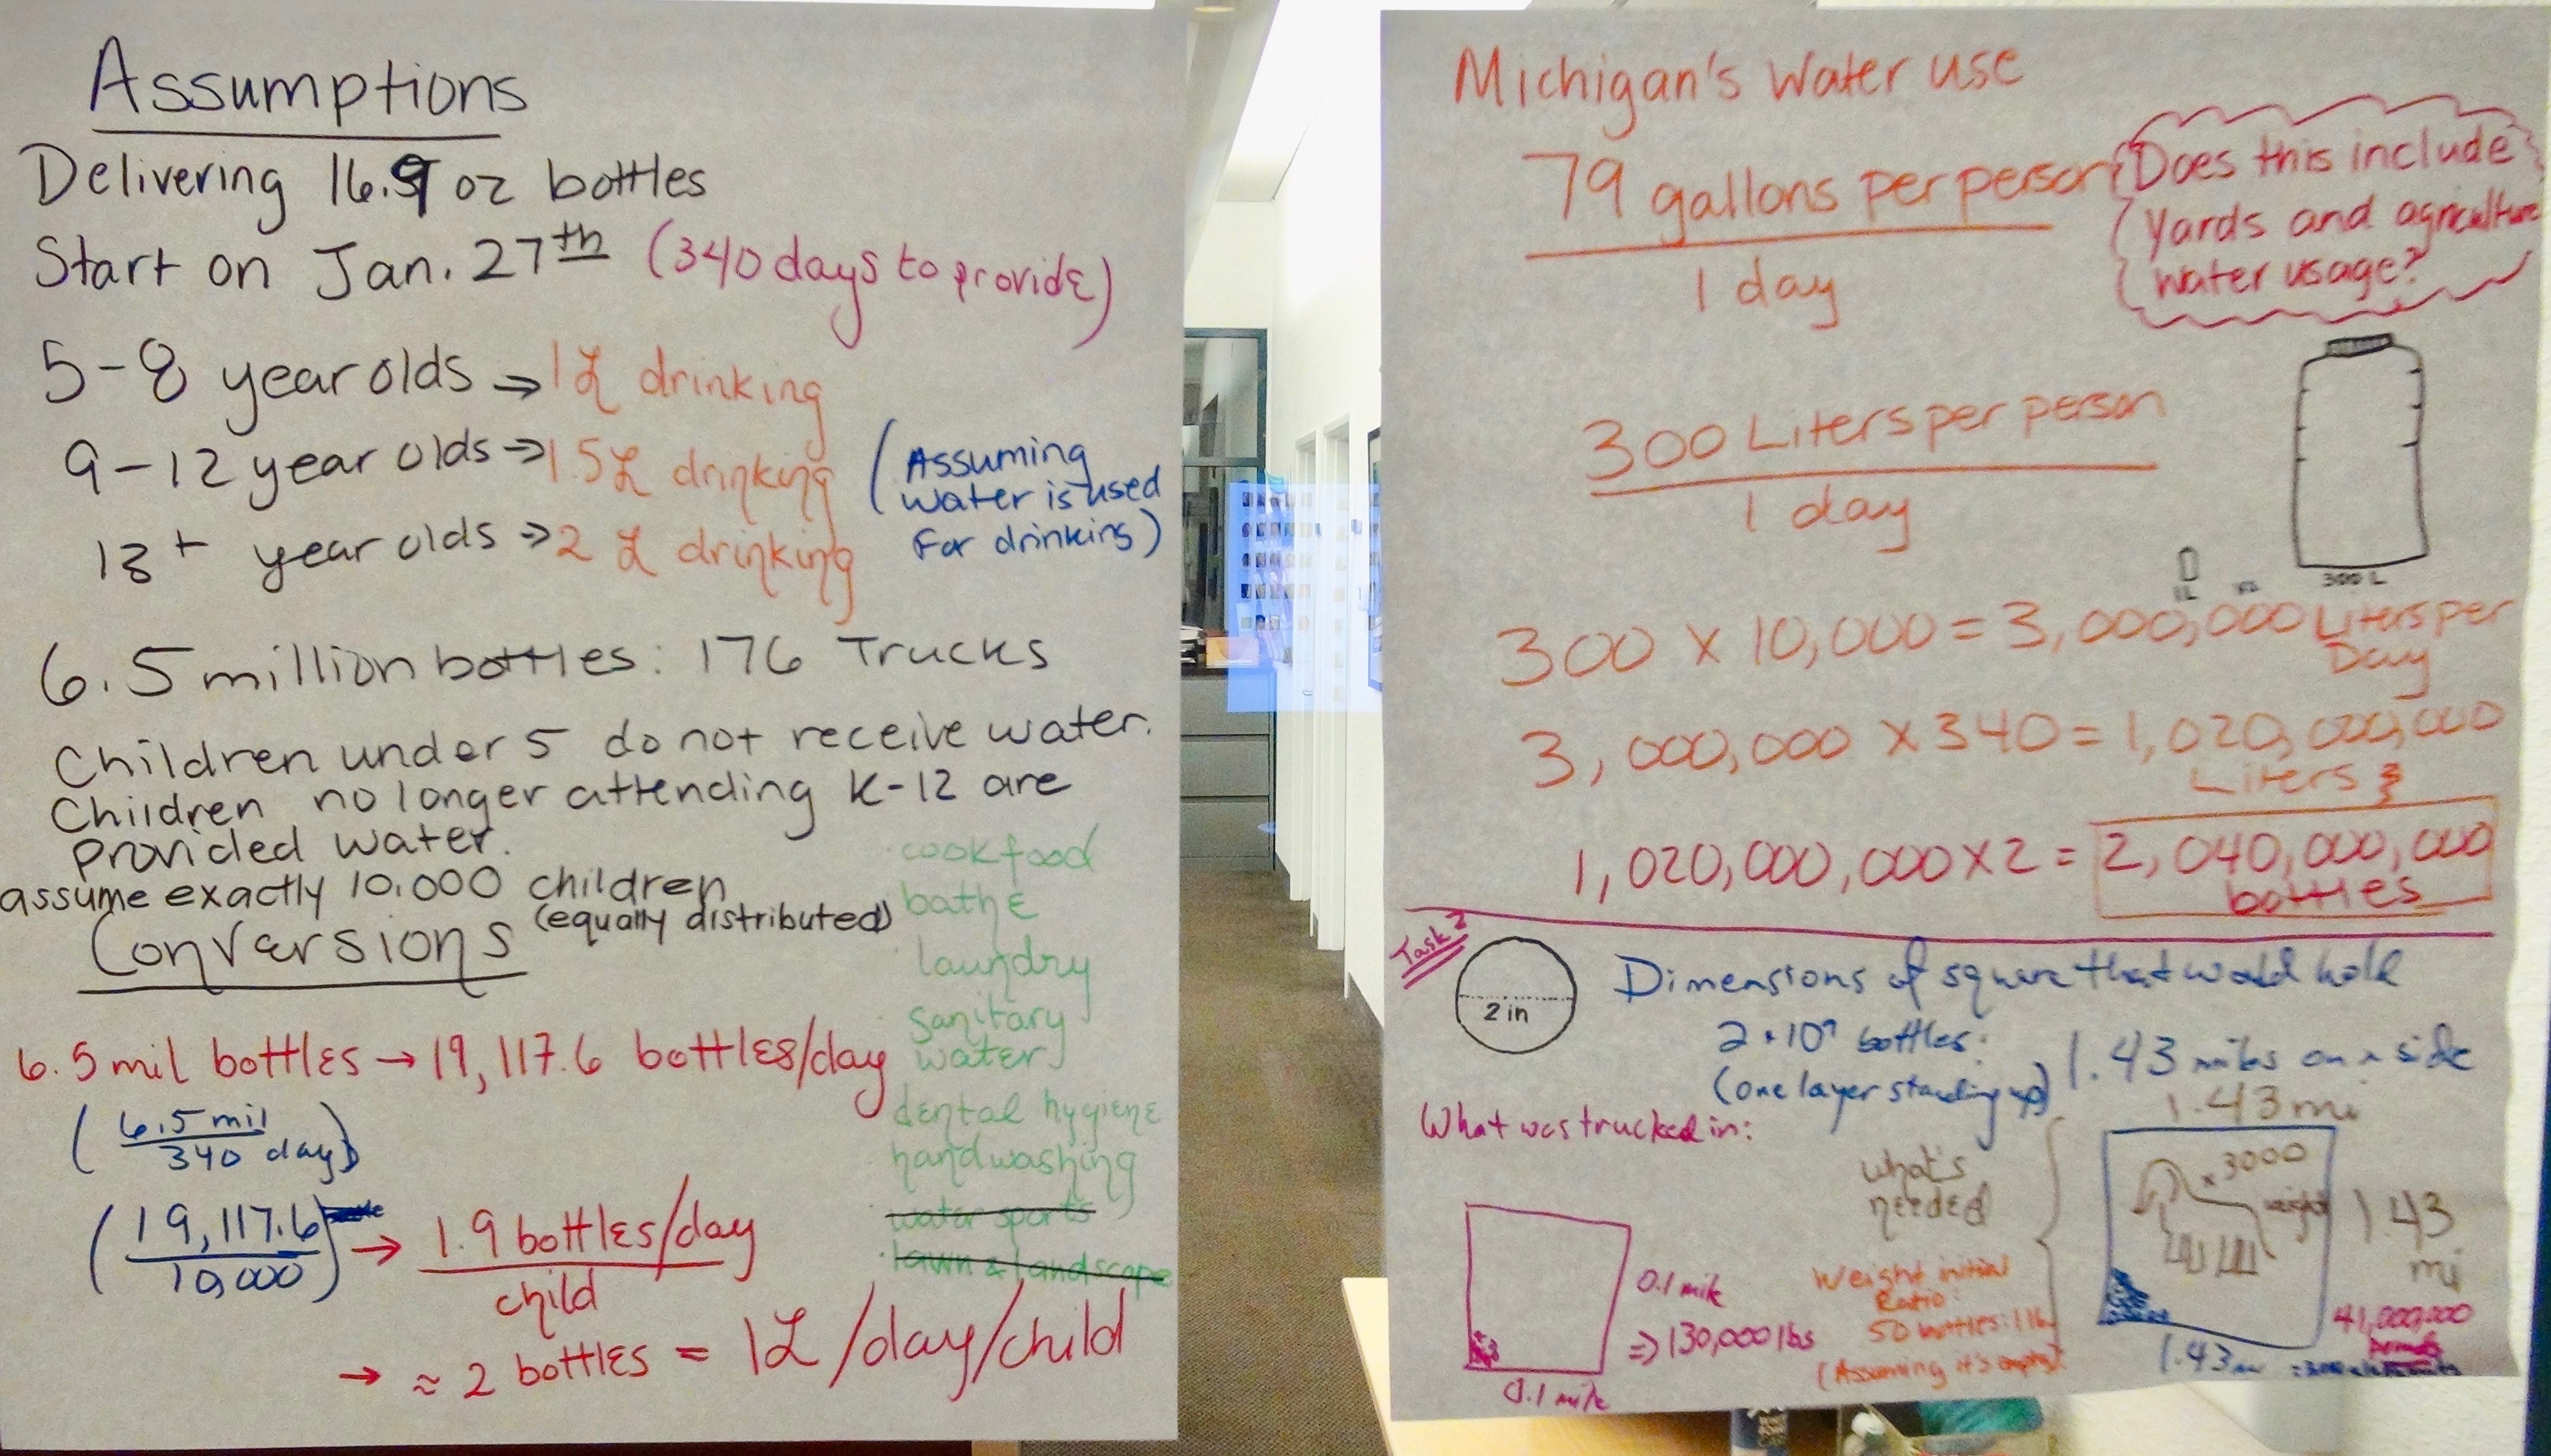 Assumptions
Delivering 16.9 oz bottles
Start on Jan. 27th (340 days to provide)
5-8 year olds → 1L drinking
9-12 year olds → 1.5L drinking
13+ year olds → 2 L drinking
(Assuming
water is used
for drinking)
6.5 million bottles: 176 Trucks
Children under 5 do not receive water.
Children no longer attending K-12 are
provided water.
assume exactly 10,000 children
(equally distributed)
Conversions
6.5 mil bottles → 19,117.6 bottles/day
(6.5 mil
340 days)
(19,117.6
10,000) → 1.9 bottles/day
child
→ ≈ 2 bottles = 1L/day/child
cook food
bathe
laundry
sanitary
water
dental hygiene
handwashing
water sports
lawn & landscape
Michigan's Water use
79 gallons per person
1 day
Does this include
yards and agriculture
water usage?
300 Liters per person
1 day
1L
300 L
300 x 10,000 = 3,000,000 Liters per
Day
3,000,000 x 340 = 1,020,000,000
Liters
1,020,000,000 x 2 = 2,040,000,000
bottles
Task 2
2 in
Dimensions of square that would hold
2 · 10⁹ bottles:
(one layer standing up)
1.43 miles on a side
What was trucked in:
0.1 mile
⇒ 130,000 lbs
0.1 mile
what's
needed
Weight initial
Ratio:
50 bottles: 1 lb
(Assuming it's empty)
1.43 mi
x 3000
weight
1.43
mi
41,000,000
pounds
1.43 mi